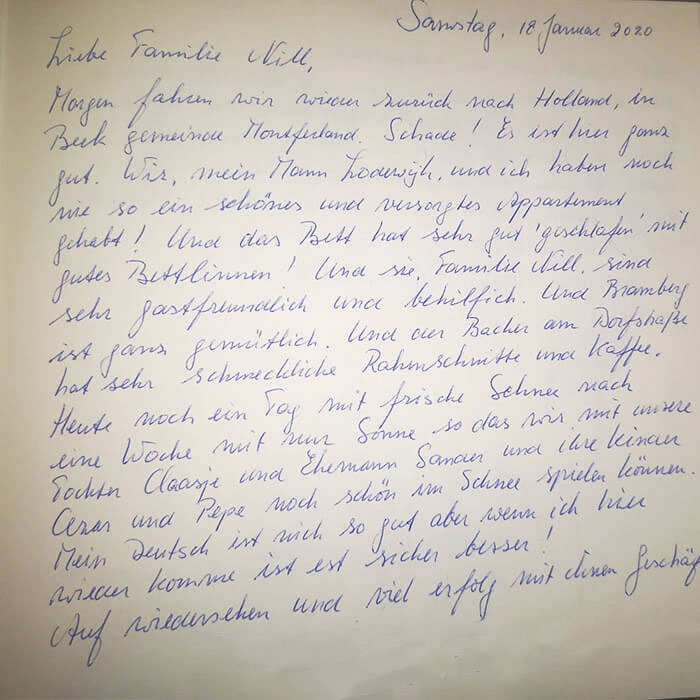 Samstag, 18 Januar 2020
Liebe Familie Nill,
Morgen fahren wir wieder zurück nach Holland, in
Beek gemeinde Montferland. Schade! Es ist hier ganz
gut. Wir, mein Mann Lodewijk, und ich haben noch
nie so ein schönes und versorgtes Appartement
gehabt! Und das Bett hat sehr gut 'geschlafen' mit
gutes Bettlinnen! Und sie, Familie Nill, sind
sehr gastfreundlich und behilflich. Und Bramberg
ist ganz gemütlich. Und der Bacher am Dorfstraße
hat sehr schmeckliche Rahmschnitte und Kaffee.
Heute noch ein Tag mit frische Schnee nach
eine Woche mit nur Sonne so das wir mit unsere
Tochter Claasje und Ehemann Sander und ihre kinder
Cezar und Pepe noch schön im Schnee spielen können.
Mein Deutsch ist nich so gut aber wenn ich hier
wieder komme ist est sicher besser!
Auf wiedersehen und viel erfolg mit